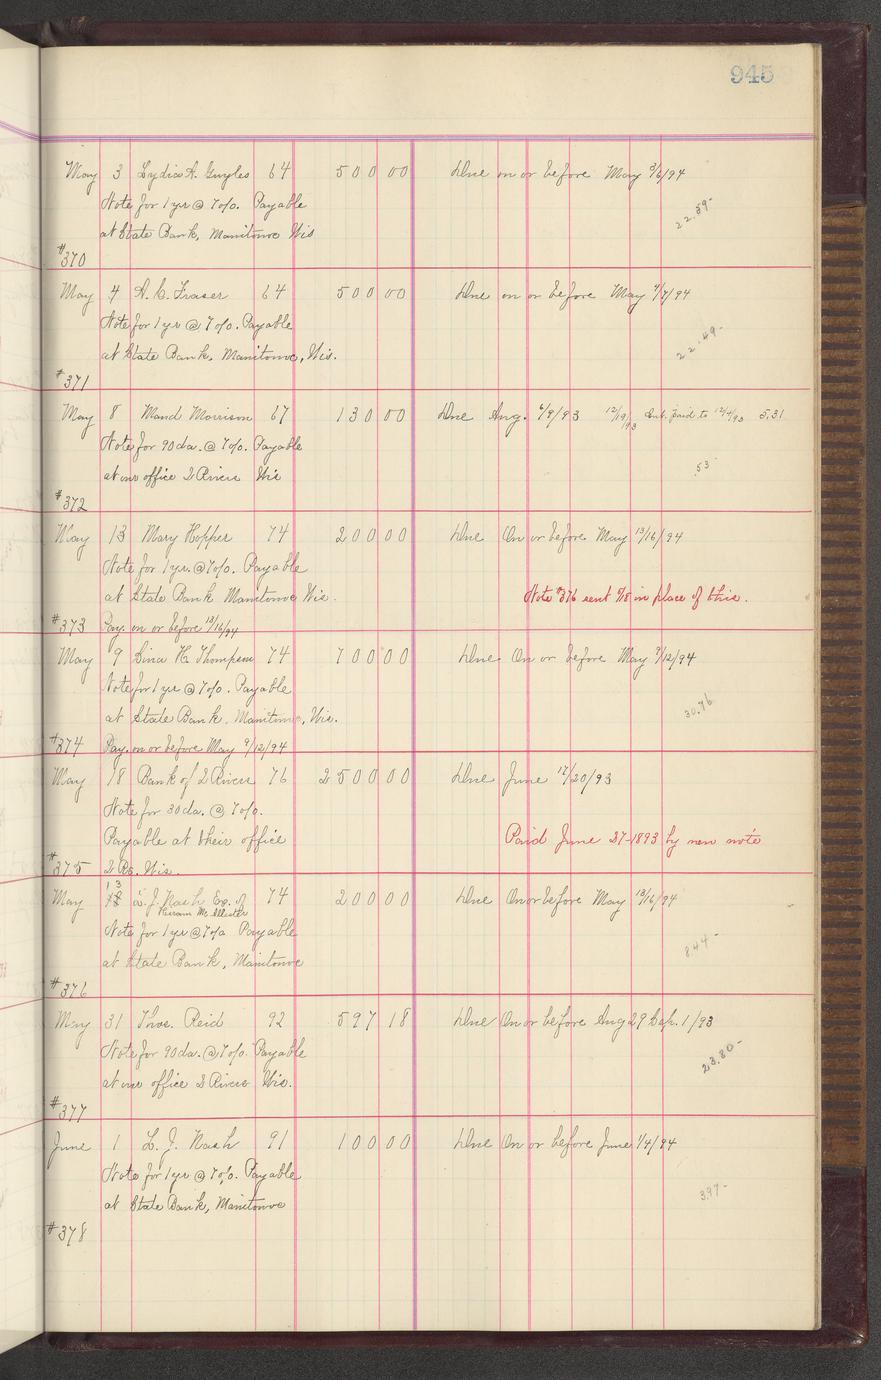 945
May 3 Lydia A. Guyles 64 500 00 Due on or before May 3/6/94
Note for 1 yr @ 7 o/o. Payable
at State Bank, Manitowoc Wis
22.59-
#370
May 4 A. C. Fraser 64 500 00 Due on or before May 4/7/94
Note for 1 yr @ 7 o/o. Payable
at State Bank, Manitowoc, Wis.
22.49-
#371
May 8 Maud Morrison 67 130 00 Due Aug. 6/9/93 12/19/93 Int. paid to 12/4/93 5.31
Note for 90 da. @ 7 o/o. Payable
at our office 2 Rivers Wis
.53
#372
May 13 Mary Hopper 74 200 00 Due On or before May 13/16/94
Note for 1 yr. @ 7 o/o. Payable
at State Bank Manitowoc Wis.
Note #376 sent 5/18 in place of this.
#373 Pay. on or before 13/16/94
May 9 Sina H. Thompson 74 700 00 Due On or before May 9/12/94
Note for 1 yr @ 7 o/o. Payable
at State Bank, Manitowoc, Wis.
30.76
#374 Pay. on or before May 9/12/94
May 18 Bank of 2 Rivers 76 2500 00 Due June 17/20/93
Note for 30 da. @ 7 o/o.
Payable at their office
Paid June 27-1893 by new note
#375 2 Rs. Wis.
13
May 18 L. J. Nash Ex. of 74 200 00 Due On or before May 13/16/94
Hiram McAllister
Note for 1 yr @ 7 o/o Payable
at State Bank, Manitowoc
8.44-
#376
May 31 Thos. Reid 92 597 18 Due On or before Aug 29 Sep. 1/93
Note for 90 da. @ 7 o/o. Payable
at our office 2 Rivers Wis.
23.80-
#377
June 1 L. J. Nash 91 100 00 Due On or before June 1/4/94
Note for 1 yr @ 7 o/o. Payable
at State Bank, Manitowoc
3.97-
#378